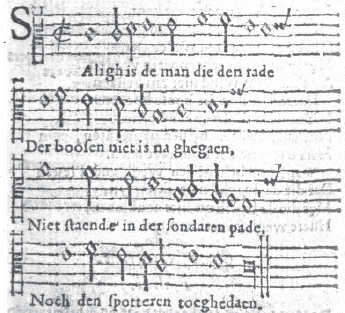 S
Aligh is de man die den rade
Der boosen niet is na ghegaen,
Niet staende in der sondaren pade,
Noch den spotteren toeghedaen.